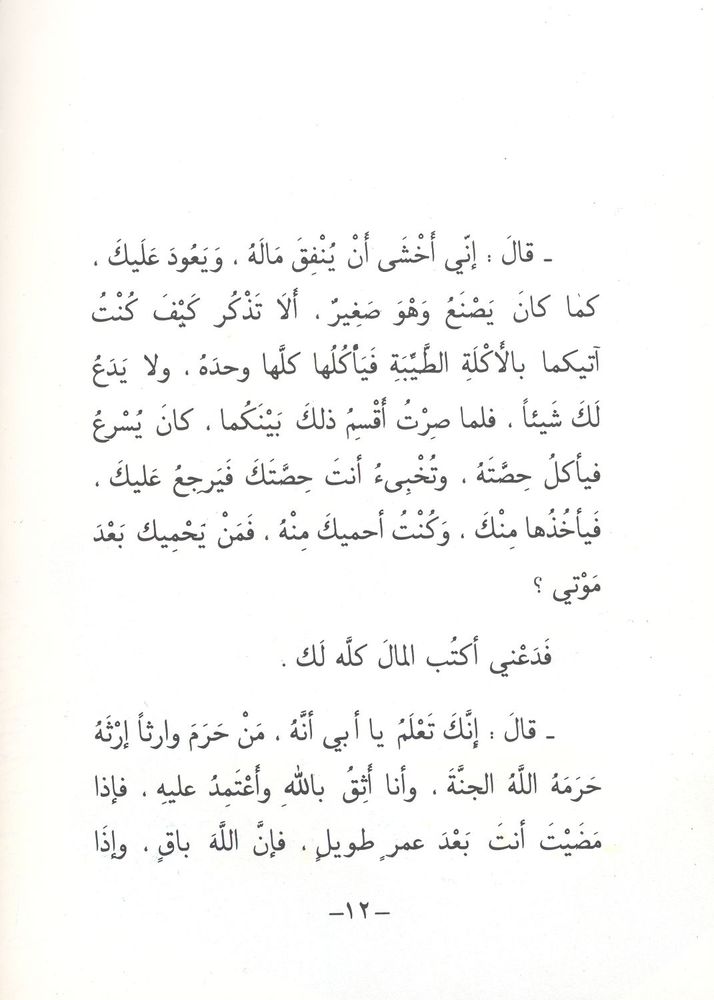 ـ قالَ : إنّي أَخْشَى أَنْ يُنْفِقَ مَالَهُ ، وَيَعُودَ عَلَيكَ ،
كما كانَ يَصْنَعُ وَهْوَ صَغِيرٌ ، أَلَا تَذْكُر كَيْفَ كُنْتُ
آتيكما بالأَكْلَةِ الطَّيِّبَةِ فَيَأكُلُها كلَّها وحدَهُ ، ولا يَدَعُ
لَكَ شَيئاً ، فلما صِرْتُ أَقْسِمُ ذلكَ بَيْنَكُما ، كانَ يُسْرعُ
فيأكلُ حِصَّتَهُ ، وتُخْبِىءُ أنتَ حِصَّتَكَ فَيَرجِعُ عَليكَ ،
فَيأخُذُها مِنْكَ ، وَكُنْتُ أحميكَ مِنْهُ ، فَمَنْ يَحْمِيك بَعْدَ
مَوْتي ؟
فَدَعْني أكتُب المالَ كلَّه لَك .
ـ قالَ : إِنَّكَ تَعْلَمُ يا أبي أنَّهُ ، مَنْ حَرَمَ وارثاً إرْثَهُ
حَرَمَهُ اللَّهُ الجنَّةَ ، وأنا أَثِقُ باللَّهِ وأَعْتَمِدُ عليهِ ، فإذا
مَضَيْتَ أنتَ بَعْدَ عمرٍ طويلٍ ، فإنَّ اللَّهَ باقٍ ، وإذَا
–١٢–